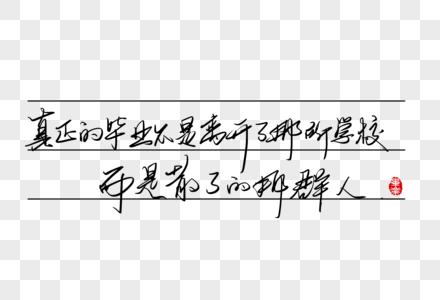 真正的毕业不是离开了那所学校
而是散了的那群人